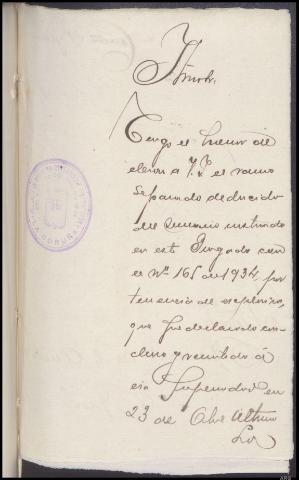 Iltmo Sr.
Tengo el honor de
elevar a V.I. el ramo
separado deducido
del sumario instruido
en este Juzgado con
el nº 165 de 1934, por
tenencia de explosivos,
que fue declarado con-
cluso y remitido á
esa Superioridad en
23 de Abril último